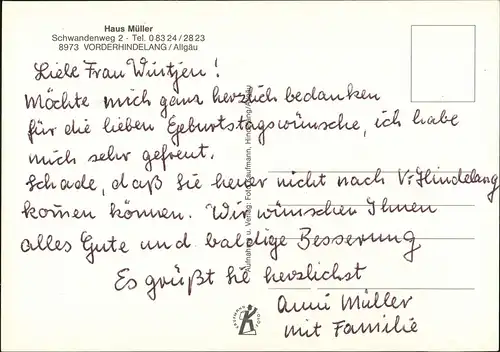 Haus Müller
Schwandenweg 2 · Tel. 0 83 24 / 28 23
8973 VORDERHINDELANG / Allgäu
Liebe Frau Wintjen!
Möchte mich ganz herzlich bedanken
für die lieben Geburtstagswünsche, ich habe
mich sehr gefreut.
Schade, daß Sie heuer nicht nach V.-Hindelang
kom̄en können. Wir wünschen Ihnen
alles Gute und baldige Besserung
Es grüßt Sie herzlichst
Anni Müller
mit Familie
Aufnahme u. Verlag: Foto Kaufmann, Hindelang/Allgäu
KAUFMANN FOTO